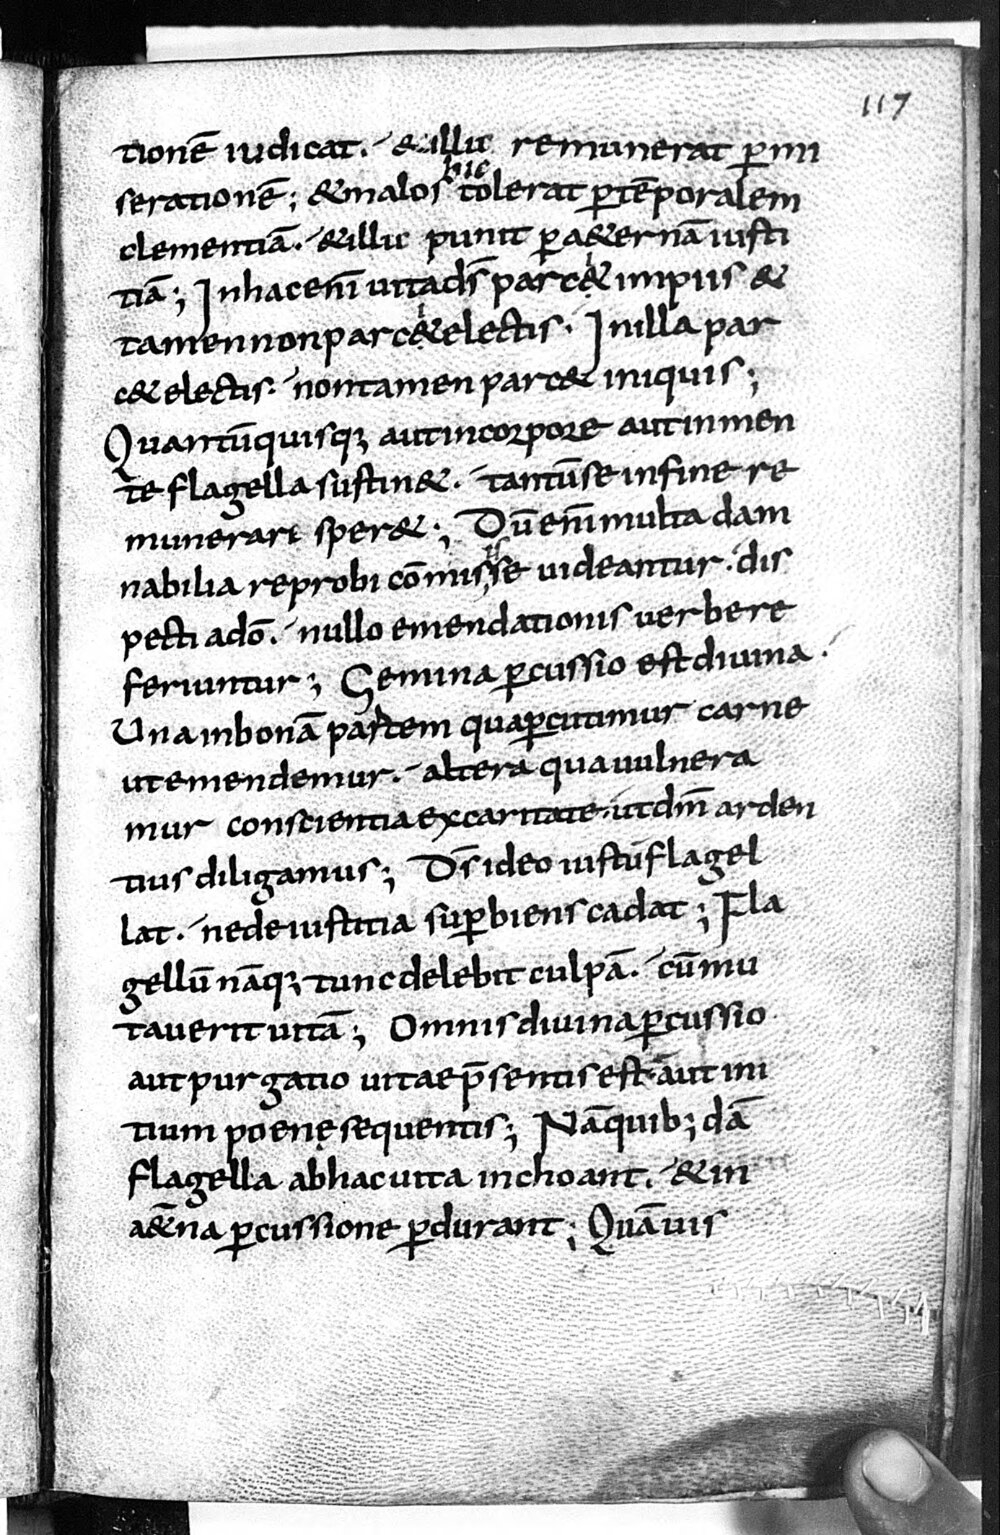 117
tionē iudicat. & illic remunerat ꝑ mi
serationē; & malos hic tolerat ꝑ tēporalem
clementiā. & illic punit ꝑ a&ernā iusti
tiā; In hac enī uita dś parc& impiis &
tamen non parc& electis. In illa par
c& electis. non tamen parc& iniquis;
Quantūquisq; aut in corpore aut in men
te flagella sustin&. tantū se in fine re
munerari sper&; Dū enī multa dam
nabilia reprobi cōmisisse uideantur. dis
pecti a dō. nullo emendationis uerbere
feriuntur; Gemina ꝑcussio est diuina.
Una in bonā partem qua ꝑcutimur carne
ut emendemur. altera qua uulnera
mur conscientia ex caritate. ut dm̄ arden
tius diligamus; Dś ideo iustū flagel
lat. ne de iustitia suꝑbiens cadat; Fla
gellū nāq; tunc delebit culpā. cū mu
tauerit uitā; Omnis diuina ꝑcussio
aut purgatio uitae p̄sentis est. aut ini
tium poenę sequentis; Nā quib; dā
flagella ab hac uita inchoant. & in
a&̄na ꝑcussione ꝑdurant; Quāuis